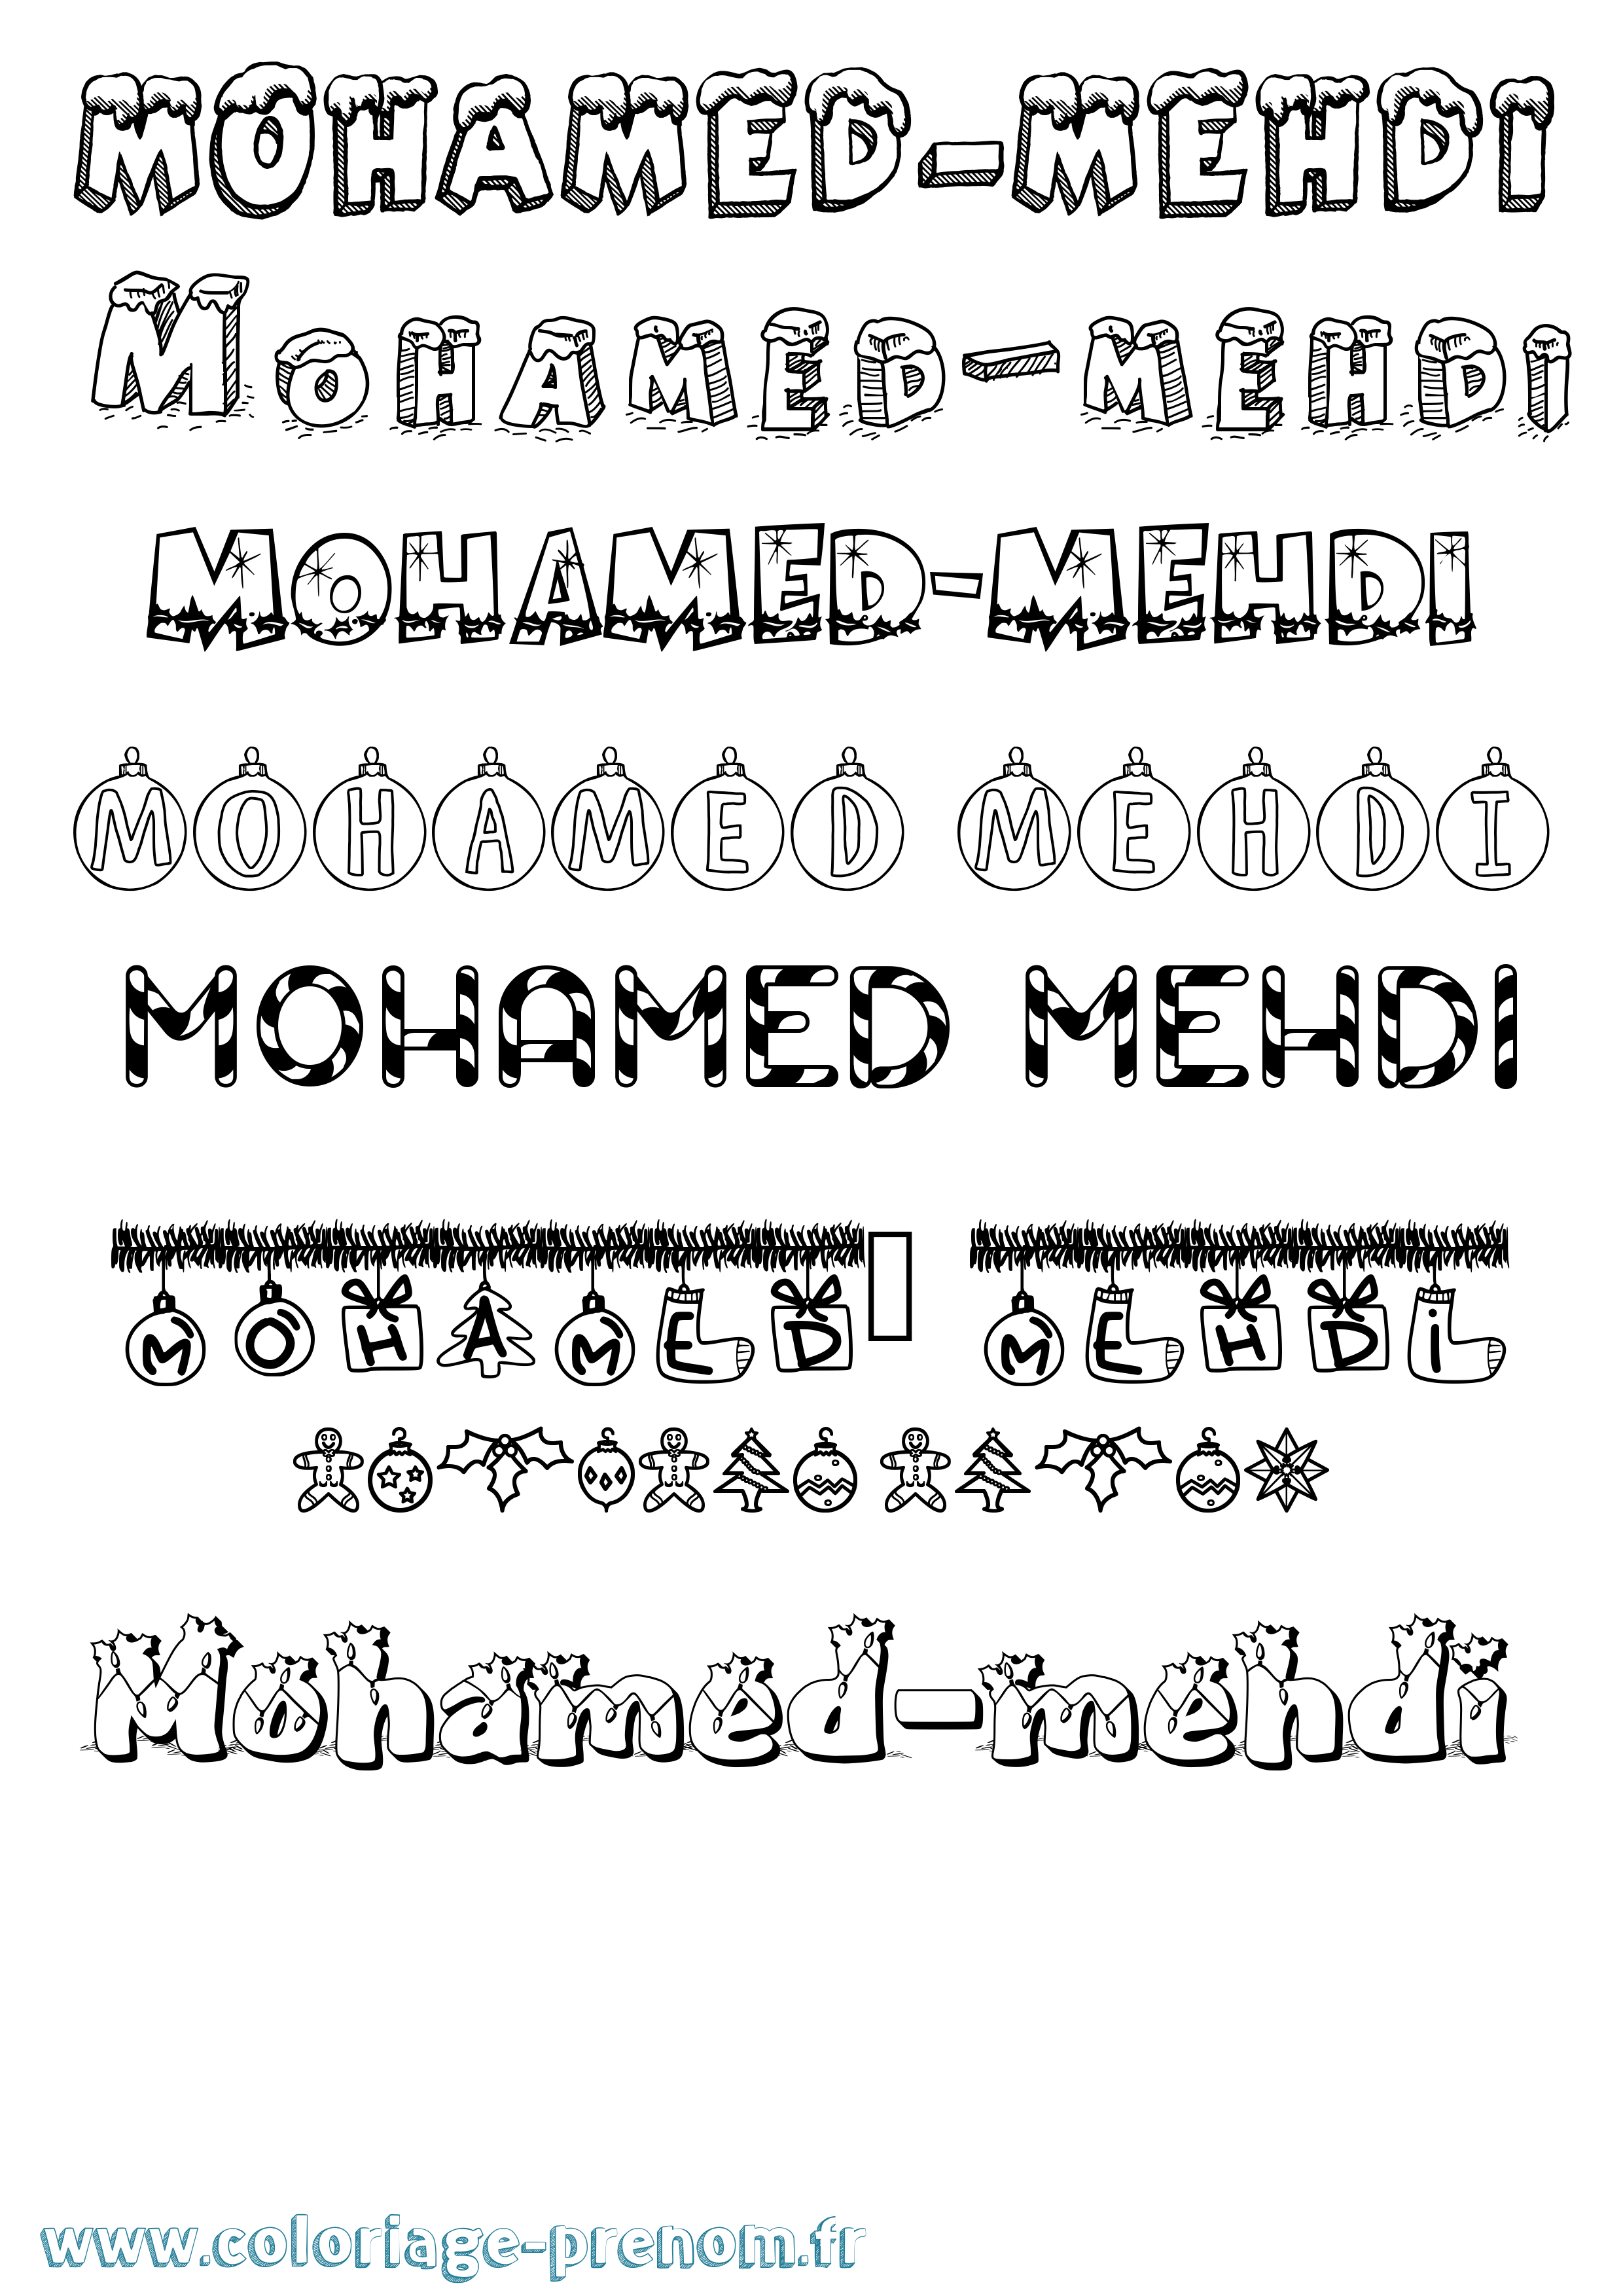 MOHAMED-MEHDI
MOHAMED-MEHDI
MOHAMED-MEHDI
MOHAMED MEHDI
MOHAMED MEHDI
MOHAMED MEHDi
Mohamed-mehdi
www.coloriage-prenom.fr